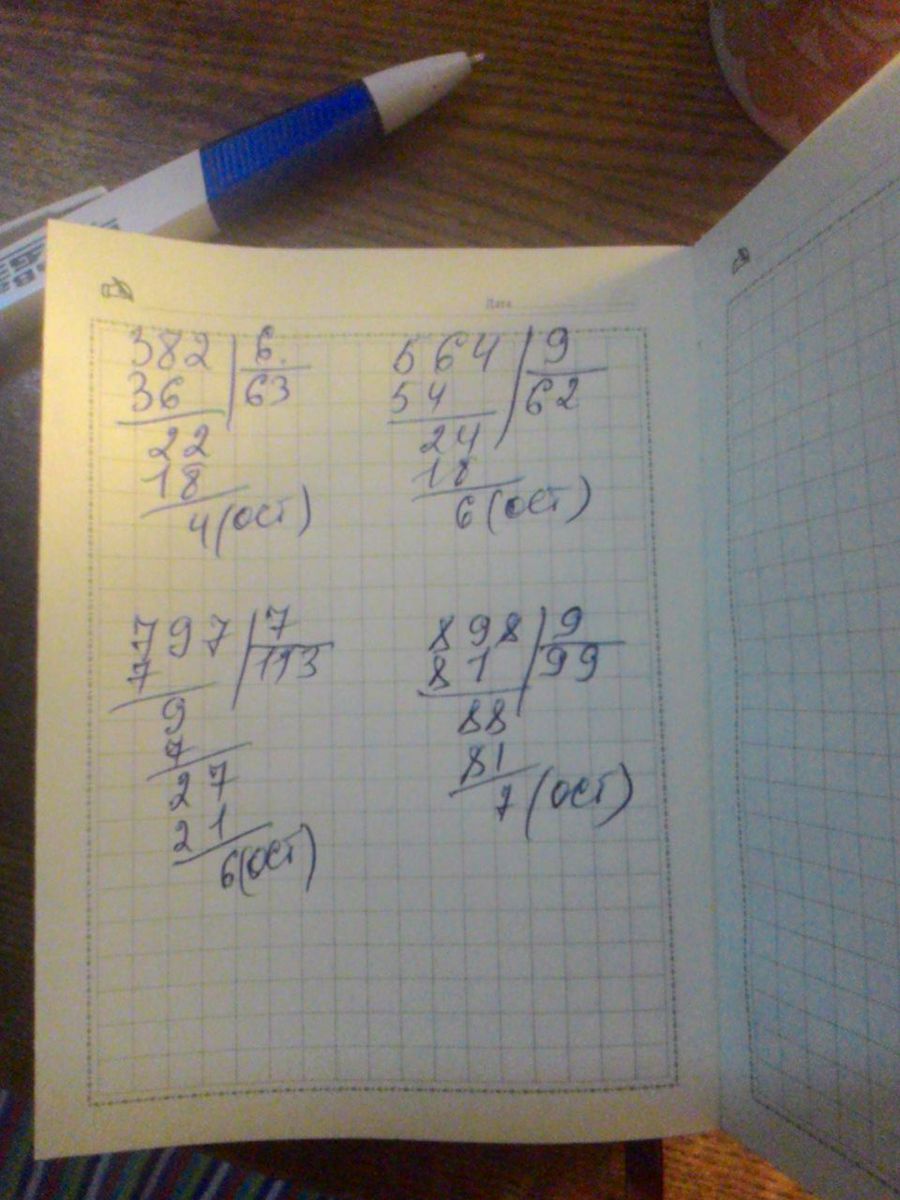 Дата
382 6.
36 63
22
18
4 (ост)
564 9
54 62
24
18
6 (ост)
797 7
7 113
9
7
27
21
6 (ост)
898 9
81 99
88
81
7 (ост)